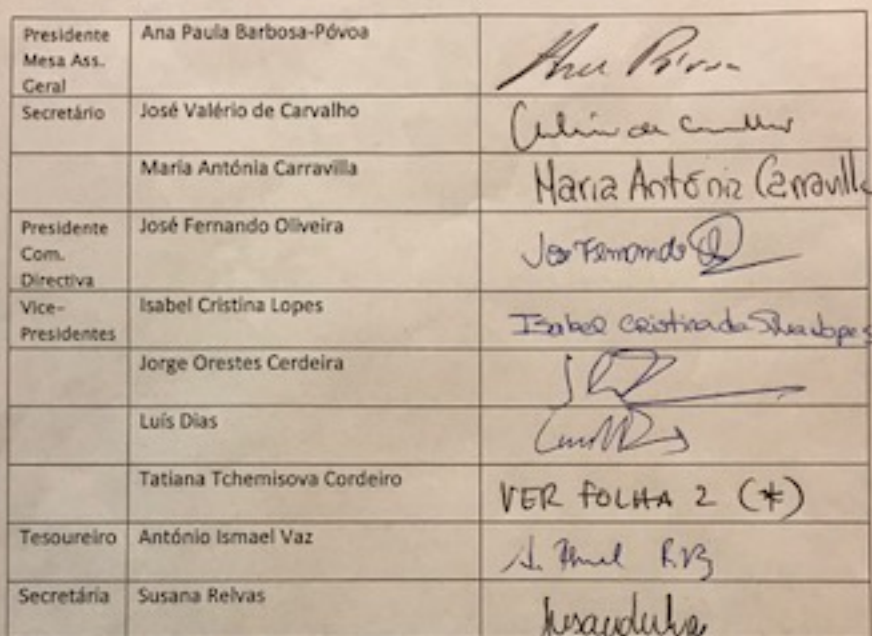 Presidente Mesa Ass. Geral
Ana Paula Barbosa-Póvoa
Ana Póvoa
Secretário
José Valério de Carvalho
Maria Antónia Carravilla
Maria Antónia Carravilla
Presidente Com. Directiva
José Fernando Oliveira
José Fernando
Vice-Presidentes
Isabel Cristina Lopes
Isabel Cristina da Silva Lopes
Jorge Orestes Cerdeira
Luís Dias
Tatiana Tchemisova Cordeiro
VER FOLHA 2 (*)
Tesoureiro
António Ismael Vaz
Secretária
Susana Relvas